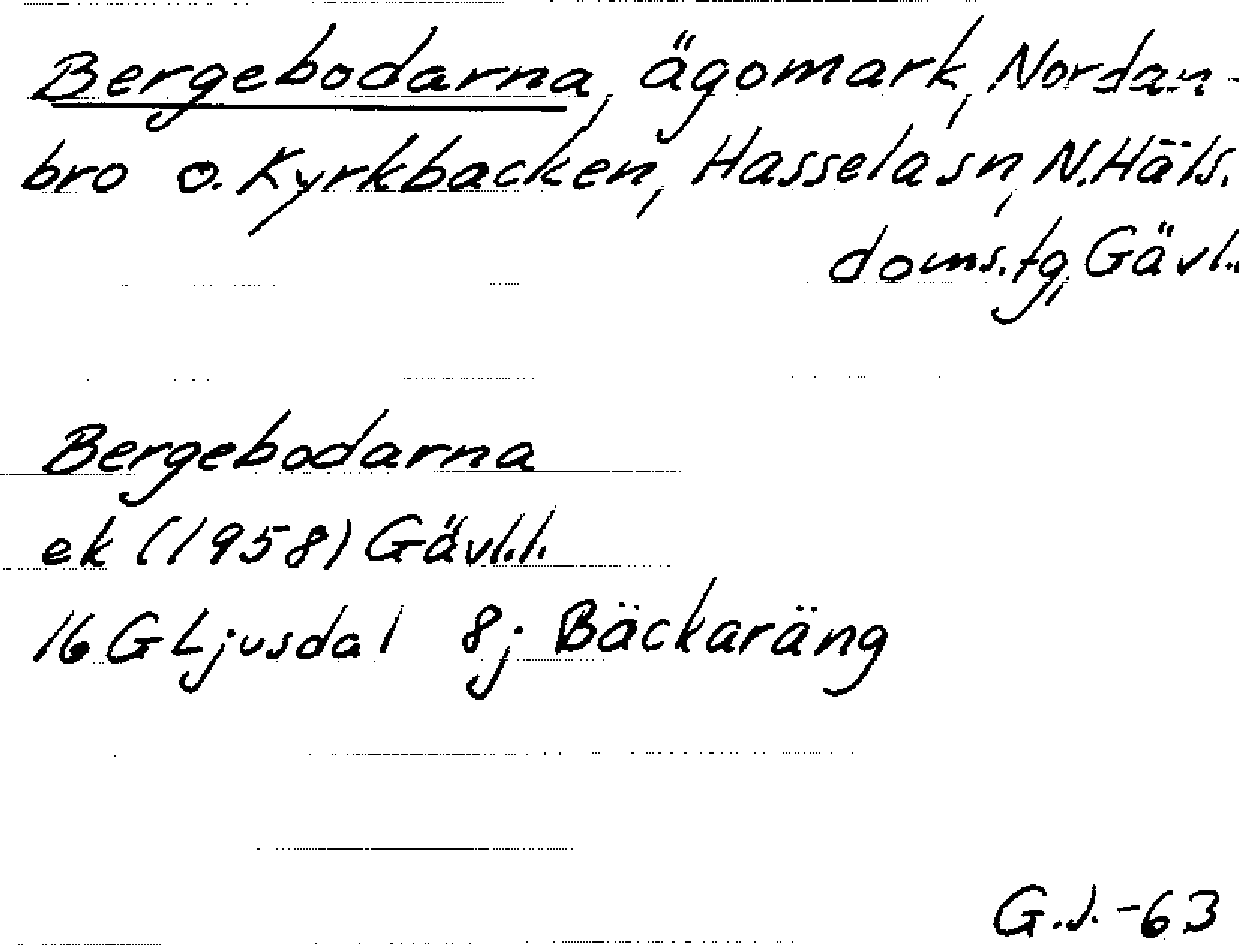 Bergebodarna, ägomark, Nordan-
bro o. Kyrkbacken, Hassela sn, N. Häls.
doms.tg, Gävl.
Bergebodarna
ek (1958) Gävl.l.
16 G Ljusdal 8j Bäckaräng
G.J.-63